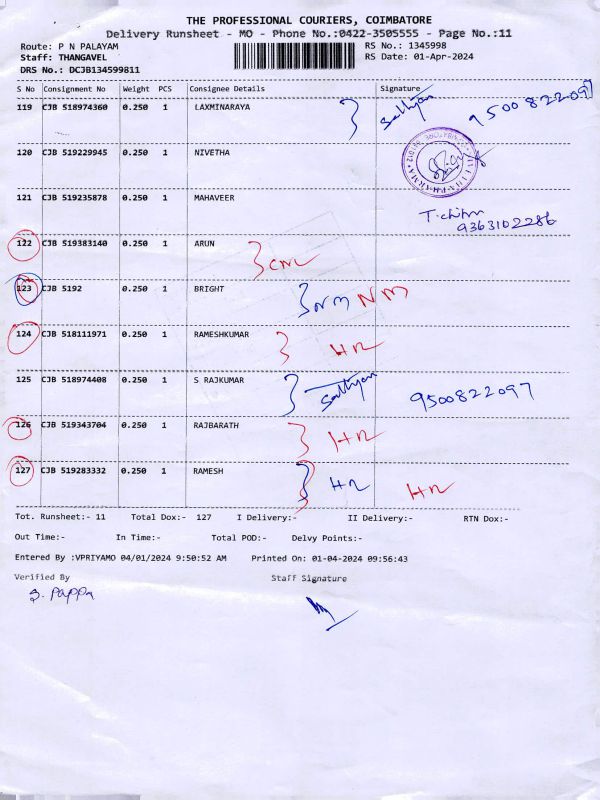 THE PROFESSIONAL COURIERS, COIMBATORE
Delivery Runsheet - MO - Phone No.:0422-3505555 - Page No.:11
Route: P N PALAYAM RS No.: 1345998
Staff: THANGAVEL RS Date: 01-Apr-2024
DRS No.: DCJB134599811
S No Consignment No Weight PCS Consignee Details Signature
119 CJB 518974360 0.250 1 LAXMINARAYA Sathyan 9500822097
120 CJB 519229945 0.250 1 NIVETHA
121 CJB 519235878 0.250 1 MAHAVEER
9363102286
122 CJB 519383140 0.250 1 ARUN
123 CJB 5192 0.250 1 BRIGHT NM NM
124 CJB 518111971 0.250 1 RAMESHKUMAR
125 CJB 518974408 0.250 1 S RAJKUMAR Sathyan 9500822097
126 CJB 519343704 0.250 1 RAJBARATH
127 CJB 519283332 0.250 1 RAMESH
Tot. Runsheet:- 11 Total Dox:- 127 I Delivery:- II Delivery:- RTN Dox:-
Out Time:- In Time:- Total POD:- Delvy Points:-
Entered By :VPRIYAMO 04/01/2024 9:50:52 AM Printed On: 01-04-2024 09:56:43
Verified By Staff Signature
S. Pappa